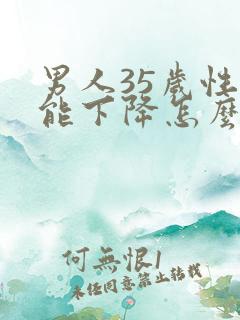 男人35歲性
能下降怎麼
何無恨1
未經同意禁止轉載